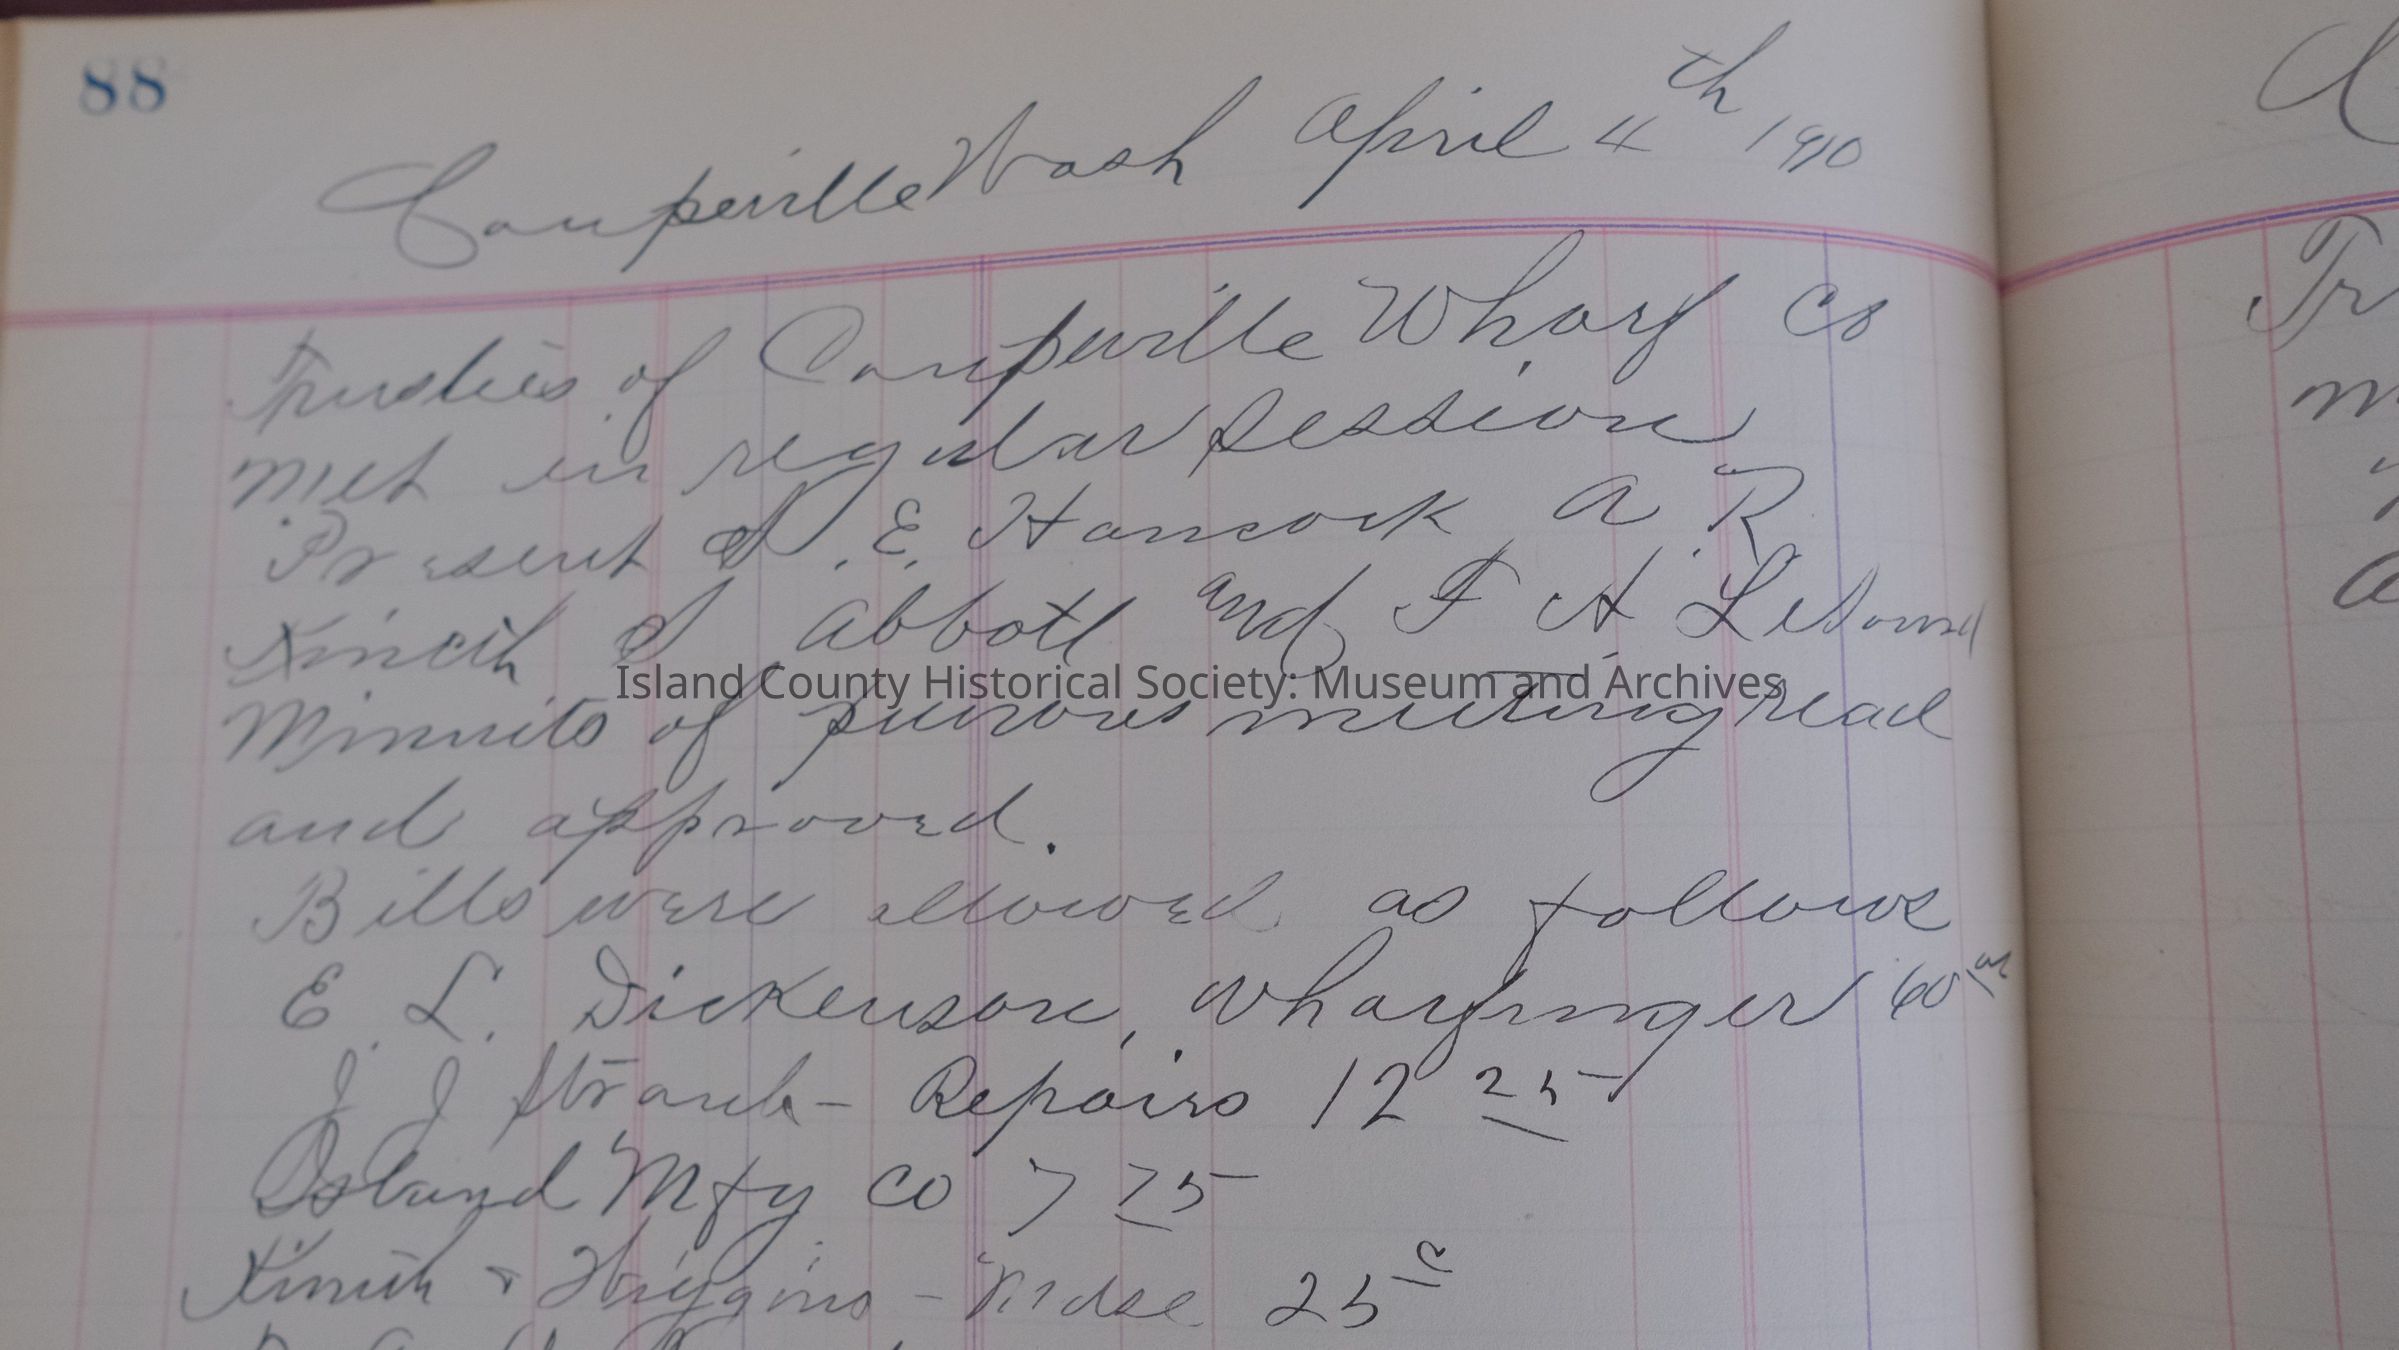 88
Coupeville Wash April 4th 1910
Trustees of Coupeville Wharf Co
met in regular session
Present S. E. Hancock A. R.
Kineth S Abbott and F A LeSourd
Minnits of previous meeting read
and approved.
Island County Historical Society: Museum and Archives
Bills were allowed as follows
E. L. Dickenson, wharfinger 60
J J Straub - Repairs 12 25
Island Mfy Co 7 75
Kineth & Higgins - Mdse 25